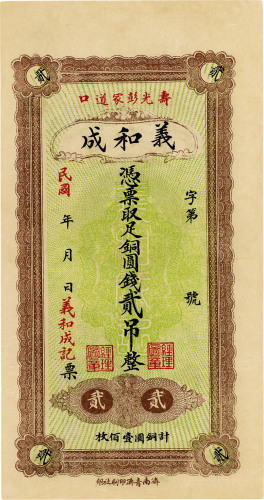 貳 貳
壽光彭家道口
義和成
字第 號
憑票取足銅圓錢貳吊整
民國 年 月 日義和成記票
貳 貳
計銅圓壹佰枚
貳 貳
濟南青濟印刷社印